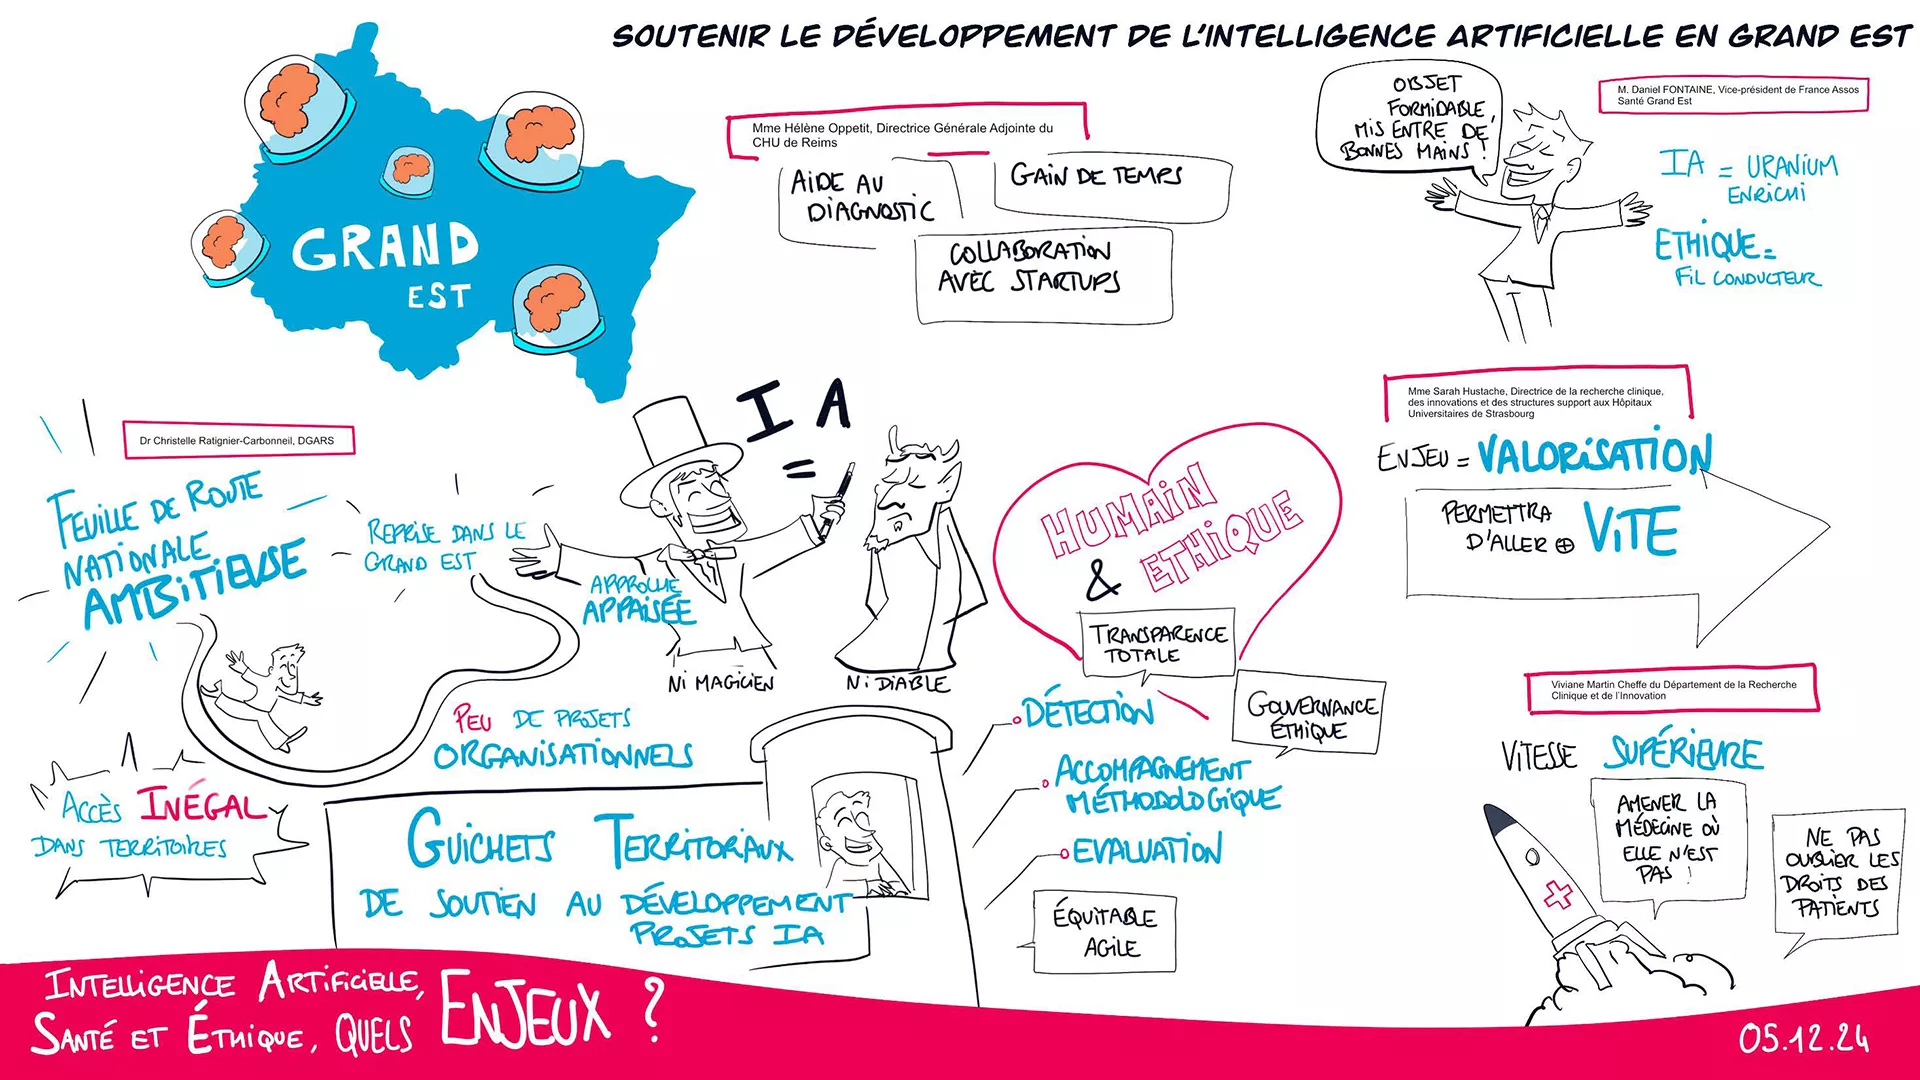 SOUTENIR LE DÉVELOPPEMENT DE L'INTELLIGENCE ARTIFICIELLE EN GRAND EST
GRAND
EST
Mme Hélène Oppetit, Directrice Générale Adjointe du
CHU de Reims
AIDE AU
DIAGNOSTIC
GAIN DE TEMPS
COLLABORATION
AVEC STARTUPS
OBJET
FORMIDABLE,
MIS ENTRE DE
BONNES MAINS !
M. Daniel FONTAINE, Vice-président de France Assos
Santé Grand Est
IA = URANIUM
ENRICHI
ETHIQUE =
FIL CONDUCTEUR
Dr Christelle Ratignier-Carbonneil, DGARS
FEUILLE DE ROUTE
NATIONALE
AMBITIEUSE
REPRISE DANS LE
GRAND EST
IA
=
APPROCHE
APPAISÉE
NI MAGICIEN
NI DIABLE
HUMAIN
& ETHIQUE
TRANSPARENCE
TOTALE
GOUVERNANCE
ÉTHIQUE
Mme Sarah Hustache, Directrice de la recherche clinique,
des innovations et des structures support aux Hôpitaux
Universitaires de Strasbourg
ENJEU = VALORISATION
PERMETTRA
D'ALLER + VITE
Viviane Martin Cheffe du Département de la Recherche
Clinique et de l'Innovation
VITESSE SUPÉRIEURE
AMENER LA
MÉDECINE OÙ
ELLE N'EST
PAS !
NE PAS
OUBLIER LES
DROITS DES
PATIENTS
ACCÈS INÉGAL
DANS TERRITOIRES
PEU DE PROJETS
ORGANISATIONNELS
GUICHETS TERRITORIAUX
DE SOUTIEN AU DÉVELOPPEMENT
PROJETS IA
DÉTECTION
ACCOMPAGNEMENT
MÉTHODOLOGIQUE
EVALUATION
ÉQUITABLE
AGILE
INTELLIGENCE ARTIFICIELLE,
SANTÉ ET ÉTHIQUE, QUELS ENJEUX ?
05.12.24